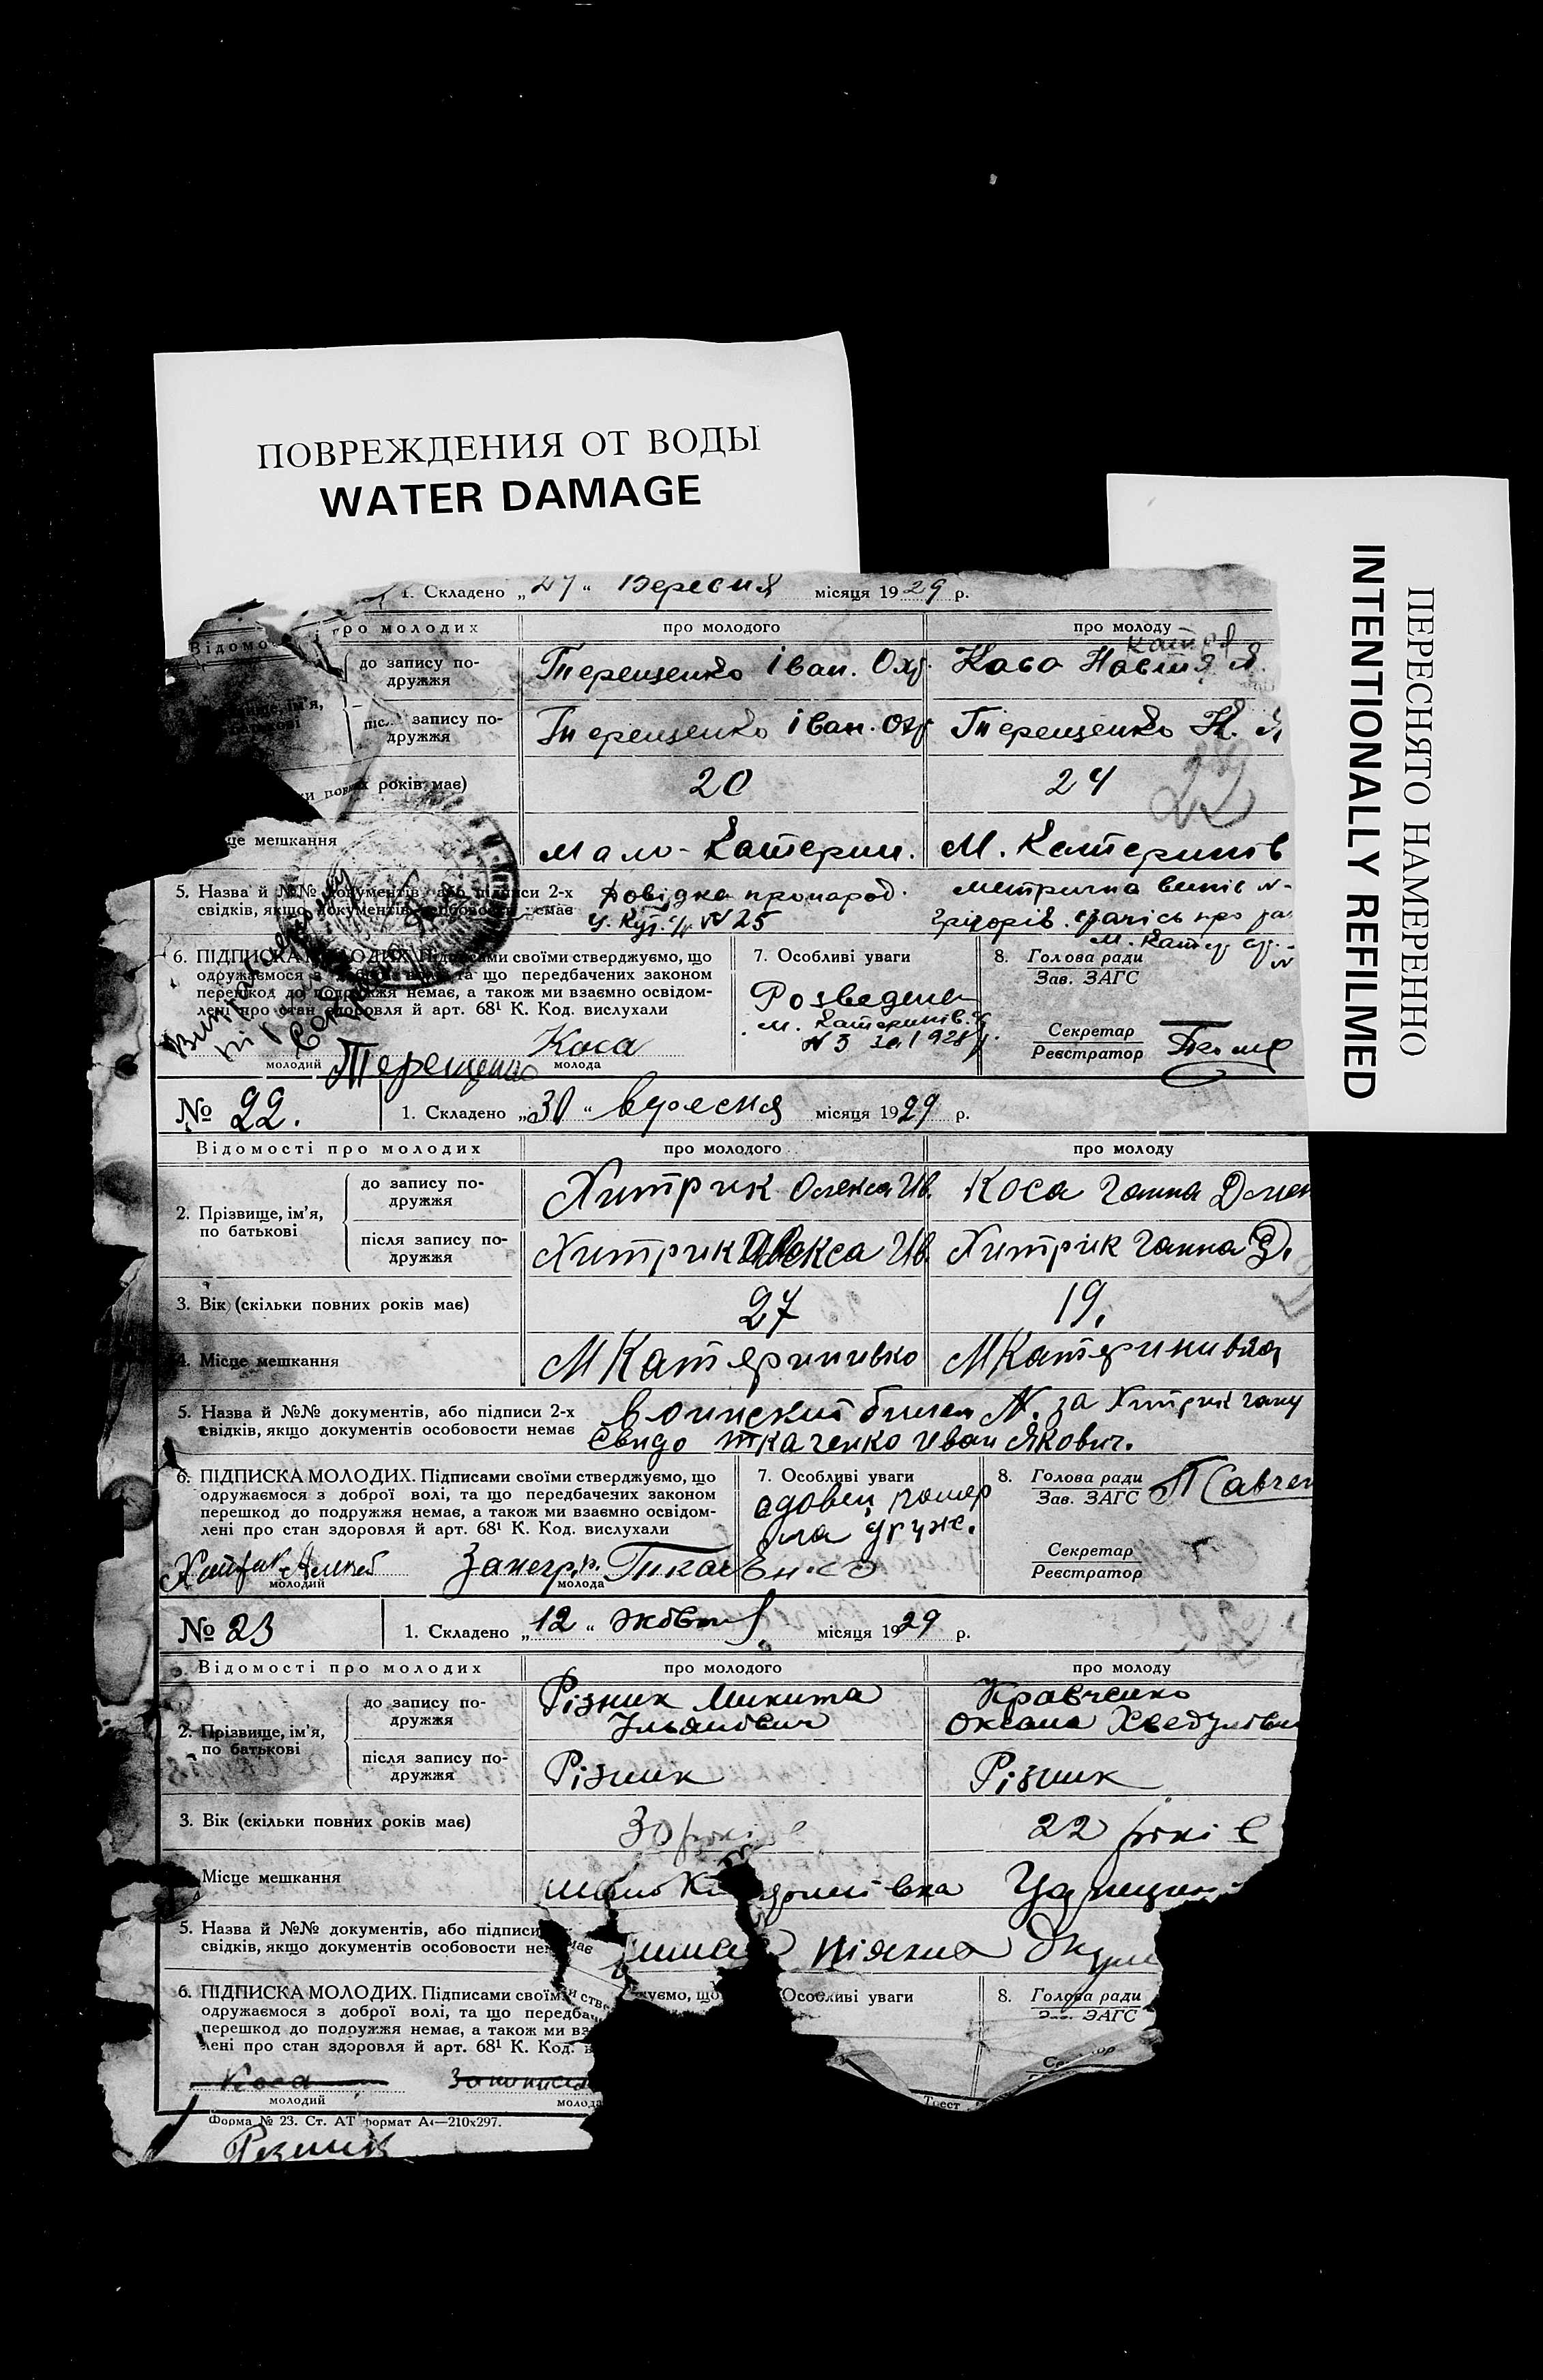 ПОВРЕЖДЕНИЯ ОТ ВОДЫ
WATER DAMAGE
ПЕРЕСНЯТО НАМЕРЕННО
INTENTIONALLY REFILMED
1. Складено „27“ Вересня місяця 1929 р.
Відомо про молодих
про молодого
про молоду
до запису по-
дружжя
Терещенко Іван. Оху.
Коса Настя Я.
ім'я,
запису по-
дружжя
Терещенко Іван. Оху
Терещенко Н. Я
років має)
20
24
22
мешкання
Мало-Катерин.
М. Катеринів
5. Назва й №№ документів, або підписи 2-х
свідків, якщо документів особовости немає
Довідка про народ.
У. Кут. с/р № 25
метрична випис №-
М. Катер
6. ПІДПИСКА МОЛОДИХ. Підписами своїми стверджуємо, що
одружаємося з доброї волі, та що передбачених законом
перешкод до подружжя немає, а також ми взаємно освідом-
лені про стан здоровля й арт. 68¹ К. Код. вислухали
7. Особливі уваги
Розведена
М. Катеринів.
№ 3 за 1928 р.
8. Голова ради
Зав. ЗАГС
Секретар
Реєстратор
Терещенко
Коса
молодий
молода
№ 22.
1. Складено „30“ вересня місяця 1929 р.
Відомості про молодих
про молодого
про молоду
2. Прізвище, ім'я,
по батькові
до запису по-
дружжя
Хитрик Олекса Ив.
Коса Ганна Демен
після запису по-
дружжя
Хитрик Олекса Ив.
Хитрік Ганна Д.
3. Вік (скільки повних років має)
27
19.
4. Місце мешкання
МКатеринивко
МКатеринивка
5. Назва й №№ документів, або підписи 2-х
свідків, якщо документів особовости немає
воинский билет №. за Хитрик ганну
Свидо ткаченко Иван Якович.
6. ПІДПИСКА МОЛОДИХ. Підписами своїми стверджуємо, що
одружаємося з доброї волі, та що передбачених законом
перешкод до подружжя немає, а також ми взаємно освідом-
лені про стан здоровля й арт. 68¹ К. Код. вислухали
7. Особливі уваги
вдовец помер
ла друж.
8. Голова ради
Зав. ЗАГС
П Савчен
Секретар
Реєстратор
молодий
молода
За негр. р. Ткаченко
№ 23
1. Складено „12“ жовтня місяця 1929 р.
Відомості про молодих
про молодого
про молоду
2. Прізвище, ім'я,
по батькові
до запису по-
дружжя
Різник Микита
Ільянович
Кравченко
Оксана Хведулівн
після запису по-
дружжя
Різник
Різник
3. Вік (скільки повних років має)
30 років
22 років
Місце мешкання
5. Назва й №№ документів, або підписи
свідків, якщо документів особовости нем
має
6. ПІДПИСКА МОЛОДИХ. Підписами своїми
одружаємося з доброї волі, та що передбач
перешкод до подружжя немає, а також ми вз
лені про стан здоровля й арт. 68¹ К. Код. в
Особливі уваги
8. Голова ради
ЗАГС
Коса
молодий
молода
Форма № 23. Ст. АТ формат А4—210х297.
Трест
Резник